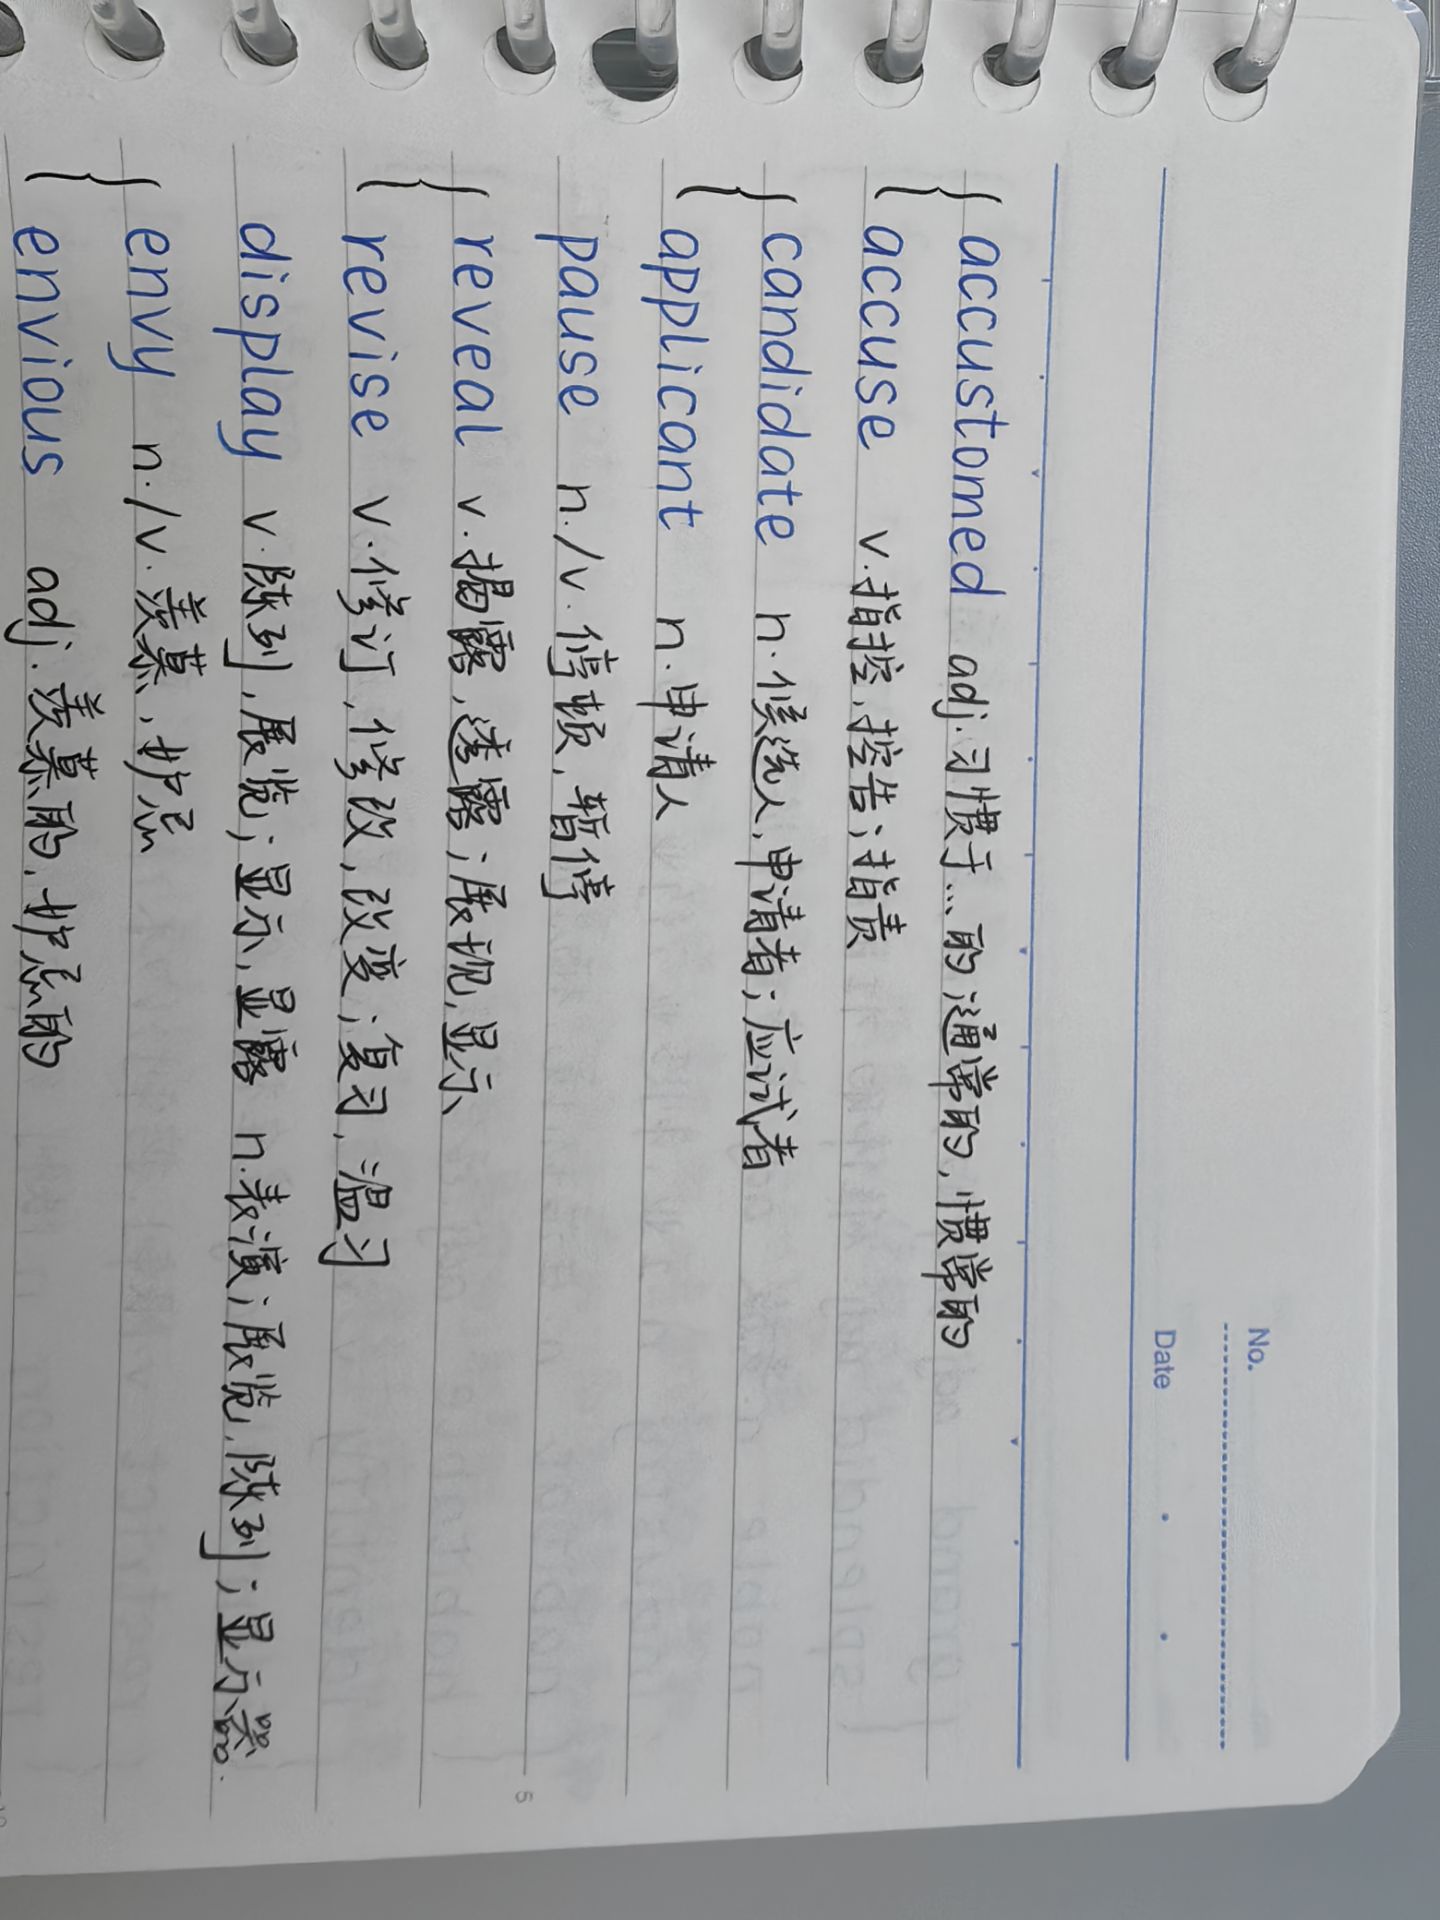 No.
Date
accustomed adj.习惯于…的;通常的,惯常的
accuse v.指控,控告;指责
candidate n.候选人,申请者;应试者
applicant n.申请人
pause n./v.停顿,暂停
reveal v.揭露,透露;展现,显示
revise v.修订,修改,改变;复习,温习
display v.陈列,展览;显示,显露 n.表演;展览,陈列;显示器.
envy n./v.羡慕,妒忌
envious adj.羡慕的,妒忌的
5
10